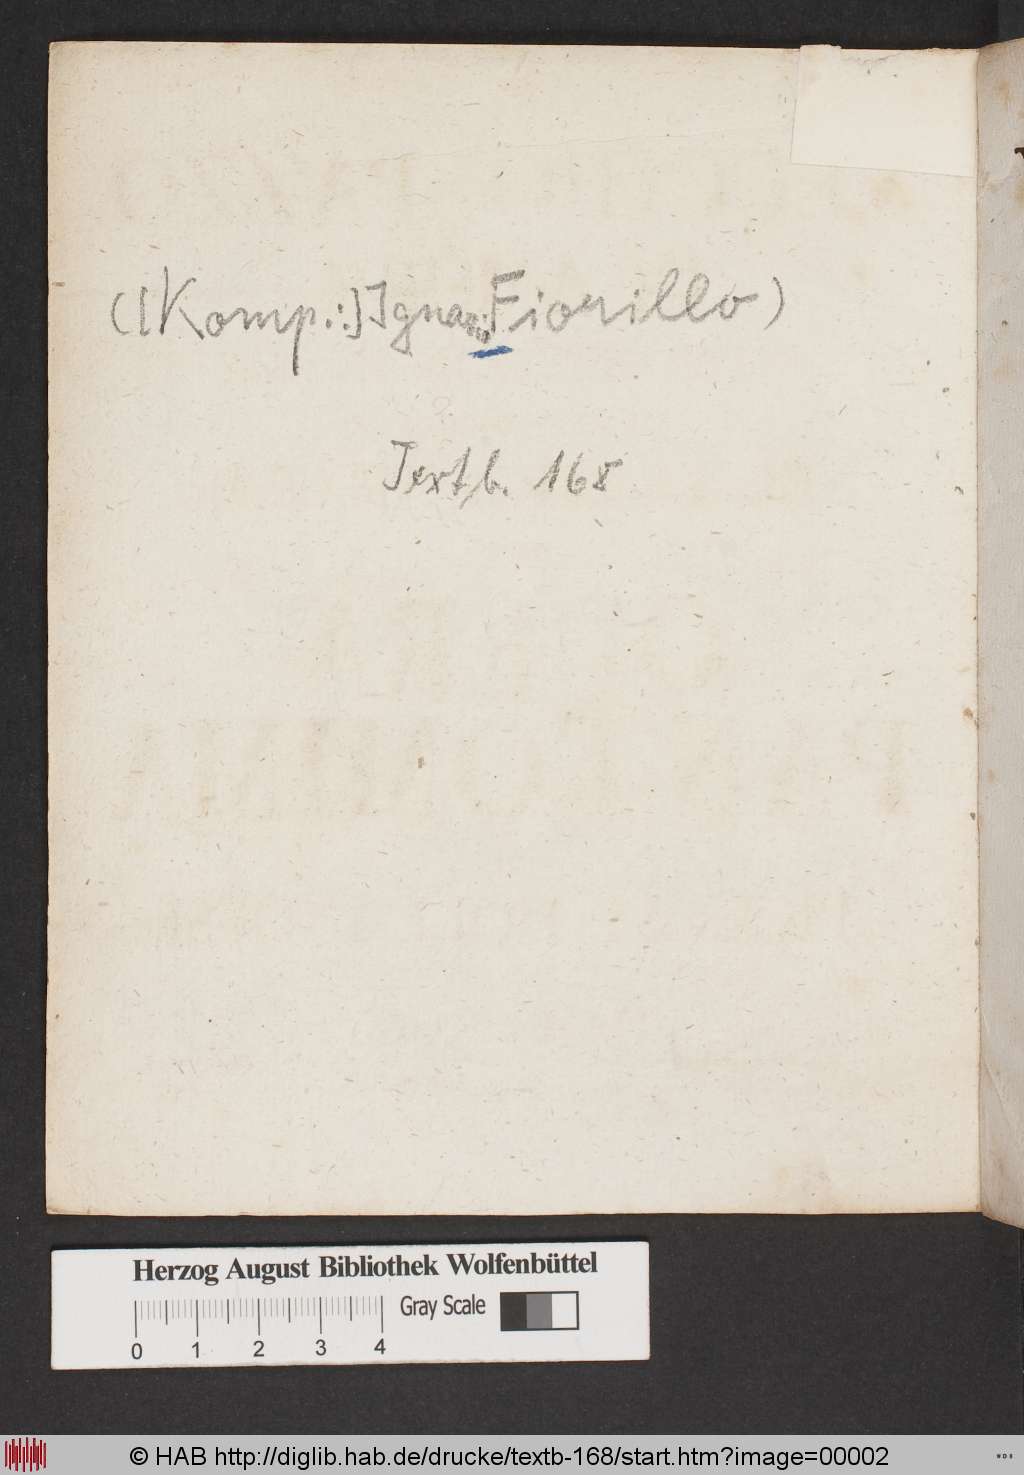 ([Komp.:] Ignaz Fiorillo)
Textb. 168
Herzog August Bibliothek Wolfenbüttel
Gray Scale
0 1 2 3 4
© HAB http://diglib.hab.de/drucke/textb-168/start.htm?image=00002